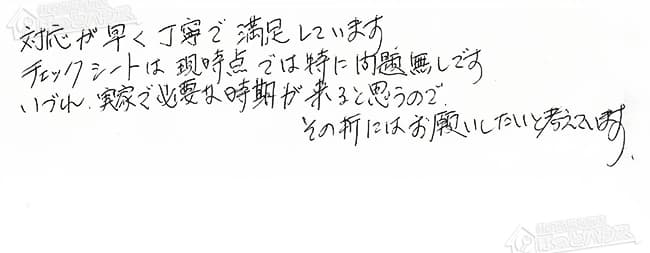 対応が早く丁寧で満足しています
チェックシートは現時点では特に問題無しです
いづれ、実家で必要な時期が来ると思うので、
その折にはお願いしたいと考えています。